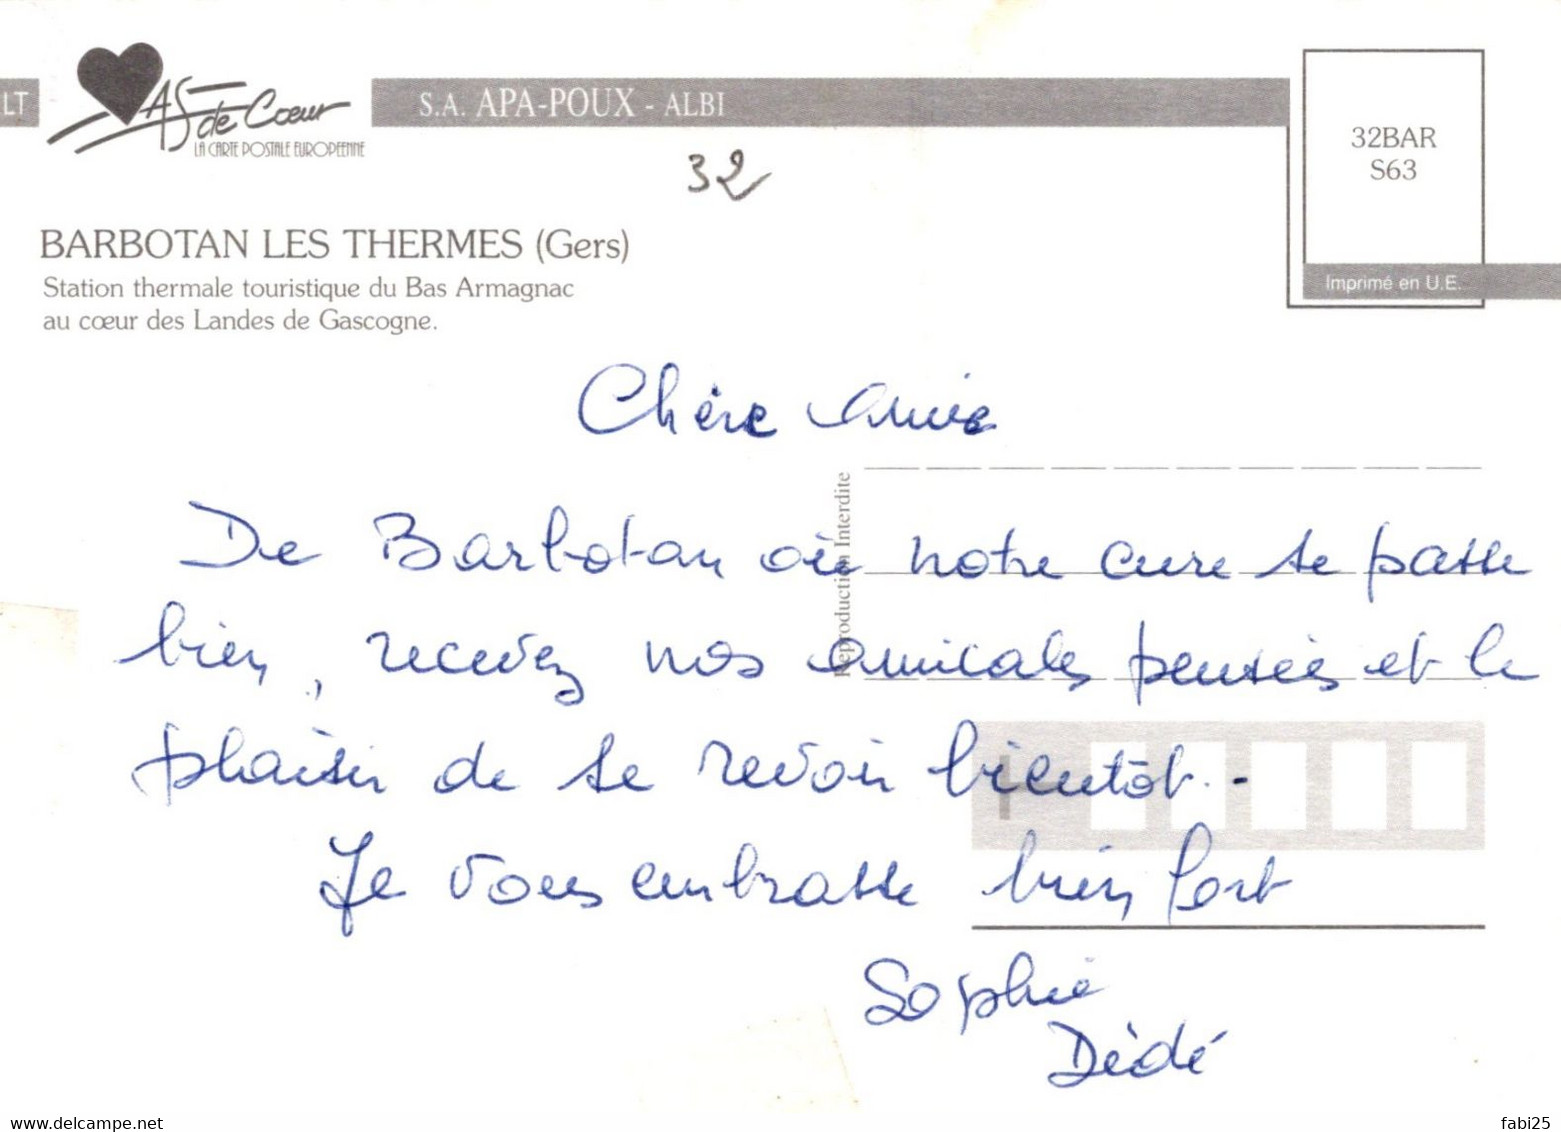 LT
AS de Cœur
LA CARTE POSTALE EUROPEENNE
S.A. APA-POUX - ALBI
32BAR
S63
32
BARBOTAN LES THERMES (Gers)
Imprimé en U.E.
Station thermale touristique du Bas Armagnac
au cœur des Landes de Gascogne.
Chère Amie
Reproduction Interdite
De Barbotan où notre cure se passe
bien, recevez nos amicales pensées et le
plaisir de se revoir bientôt.-
Je vous embrasse bien fort
Sophie
Dédé
delcampe.net
fabi25